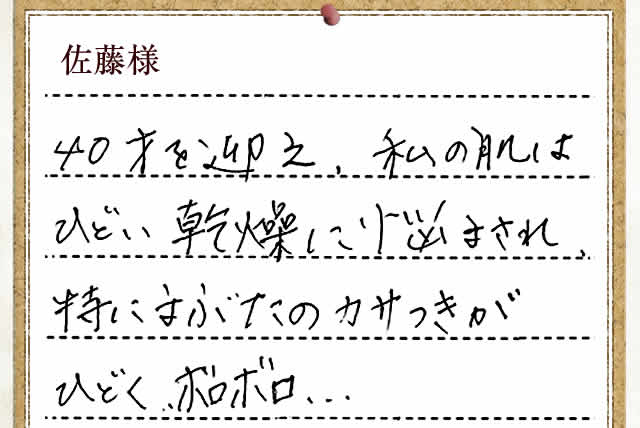 佐藤様
40才を迎え、私の肌は
ひどい乾燥に悩まされ、
特にまぶたのカサつきが
ひどく、ボロボロ...